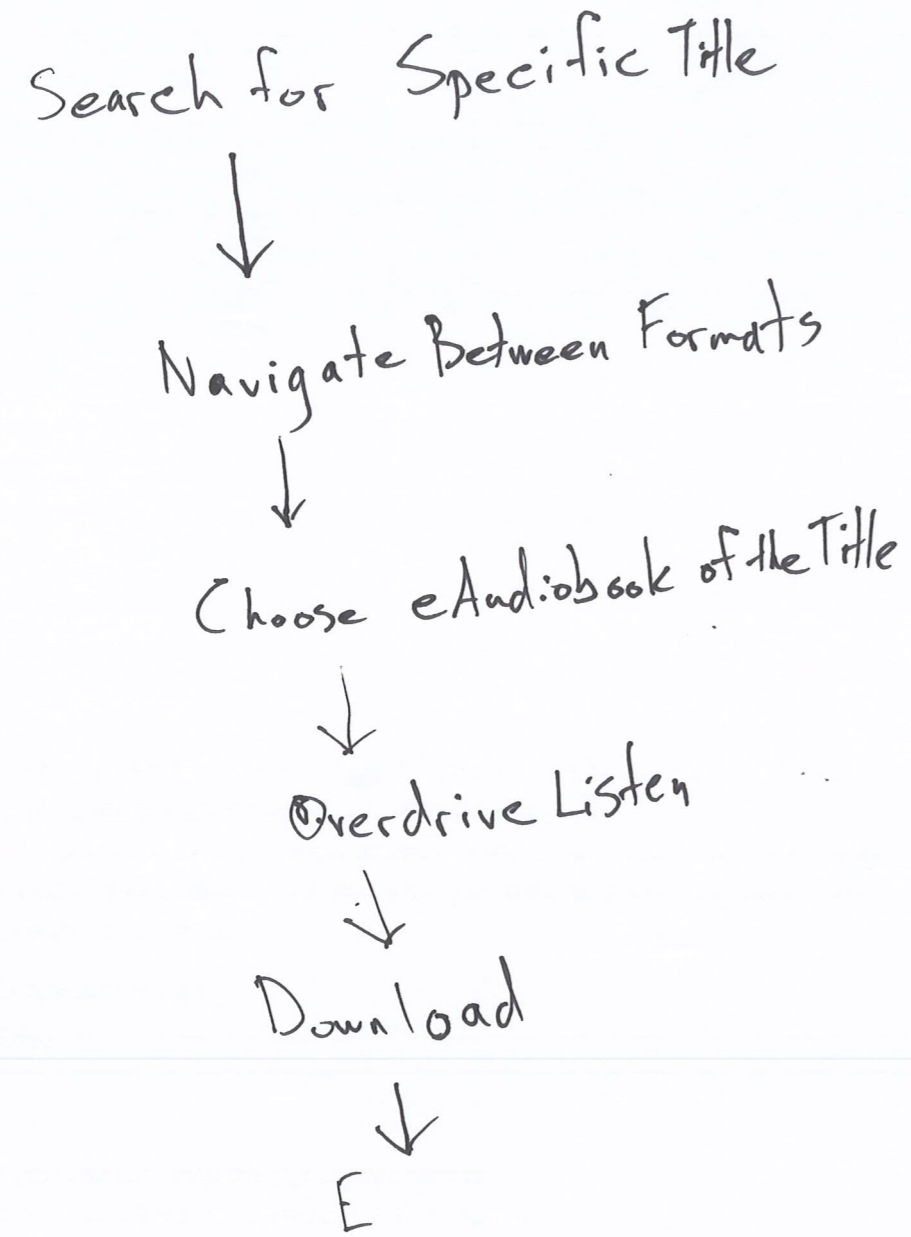 Search for Specific Title
Navigate Between Formats
Choose eAudiobook of the Title
Overdrive Listen
Download
E